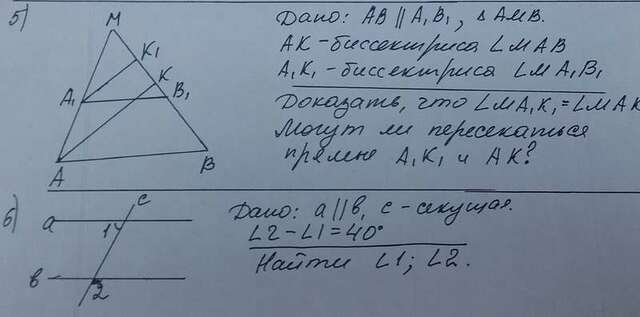 5)
M
K₁
K
A₁
B₁
A
B
Дано: AB || A₁B₁, ΔAMB.
AK - биссектриса ∠MAB
A₁K₁ - биссектриса ∠MA₁B₁
Доказать, что ∠MA₁K₁ = ∠MAK
Могут ли пересекаться
прямые A₁K₁ и AK?
6)
c
a
1
в
2
Дано: a || в, c - секущая.
∠2 - ∠1 = 40°
Найти ∠1; ∠2.